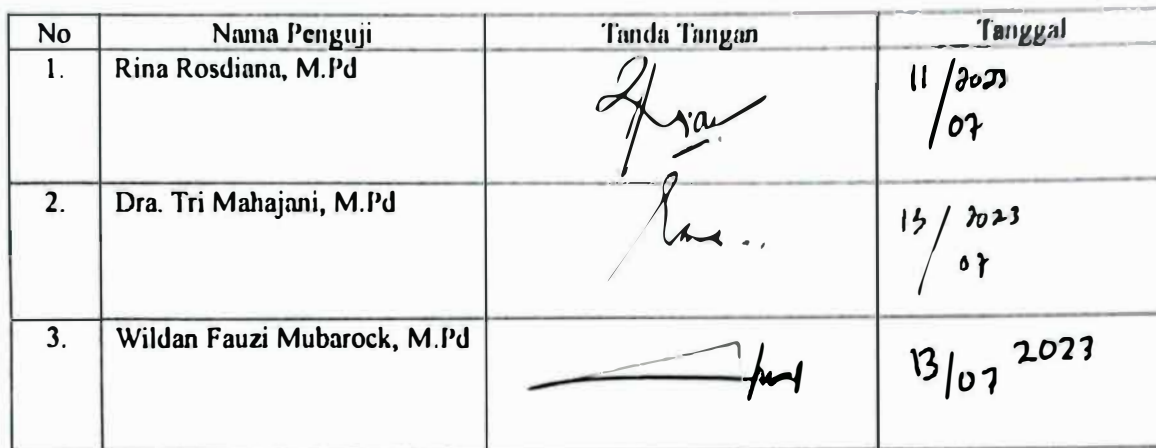 No Nama Penguji Tanda Tangan Tanggal
1. Rina Rosdiana, M.Pd 11/2023
07
2. Dra. Tri Mahajani, M.Pd 2023
07
3. Wildan Fauzi Mubarock, M.Pd 13/07 2023